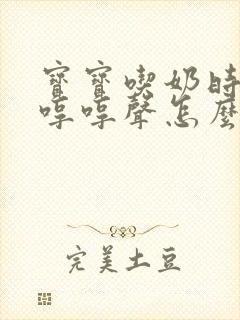 寶寶喫奶時
哼哼聲怎麼
完美土豆